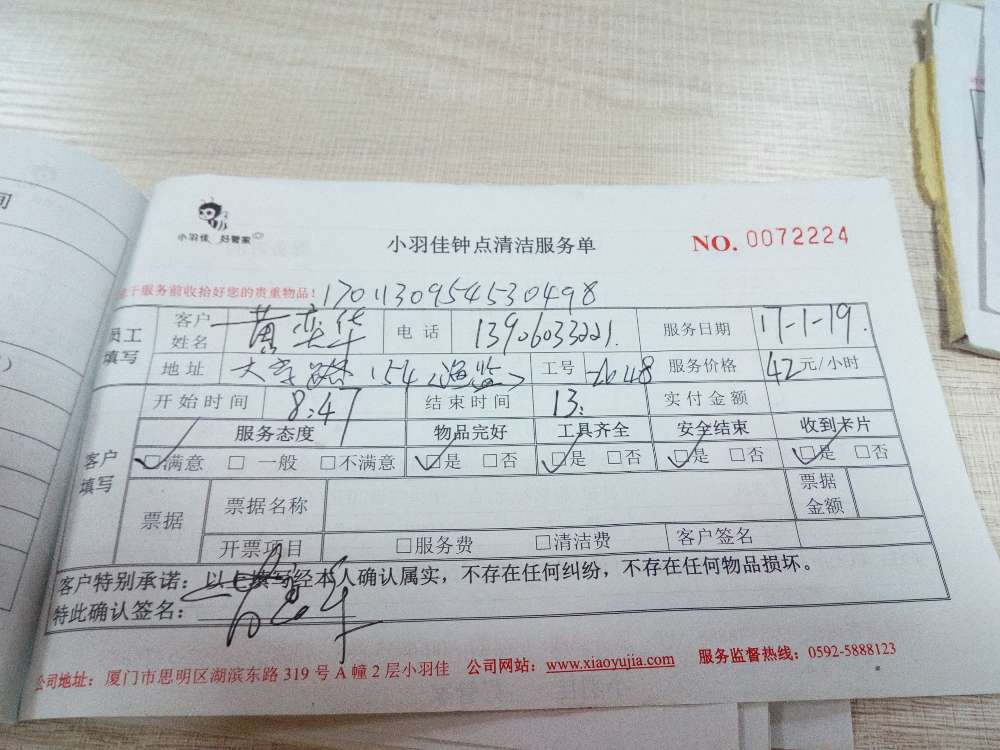 小羽佳 好管家
小羽佳钟点清洁服务单
NO. 0072224
于服务前收拾好您的贵重物品！170113095453 0498
员工填写 客户姓名 黄奕华 电话 13906033221. 服务日期 17-1-19.
地址 大学路154 工号 服务价格 42元/小时
客户填写 开始时间 8:47 结束时间 13: 实付金额
服务态度 物品完好 工具齐全 安全结束 收到卡片
☑满意 □一般 □不满意 ☑是 □否 ☑是 □否 ☑是 □否 ☑是 □否
票据 票据名称 票据金额
开票项目 □服务费 □清洁费 客户签名
客户特别承诺：以上填写经本人确认属实，不存在任何纠纷，不存在任何物品损坏。
特此确认签名：
公司地址：厦门市思明区湖滨东路319号A幢2层小羽佳 公司网站：www.xiaoyujia.com 服务监督热线：0592-5888123